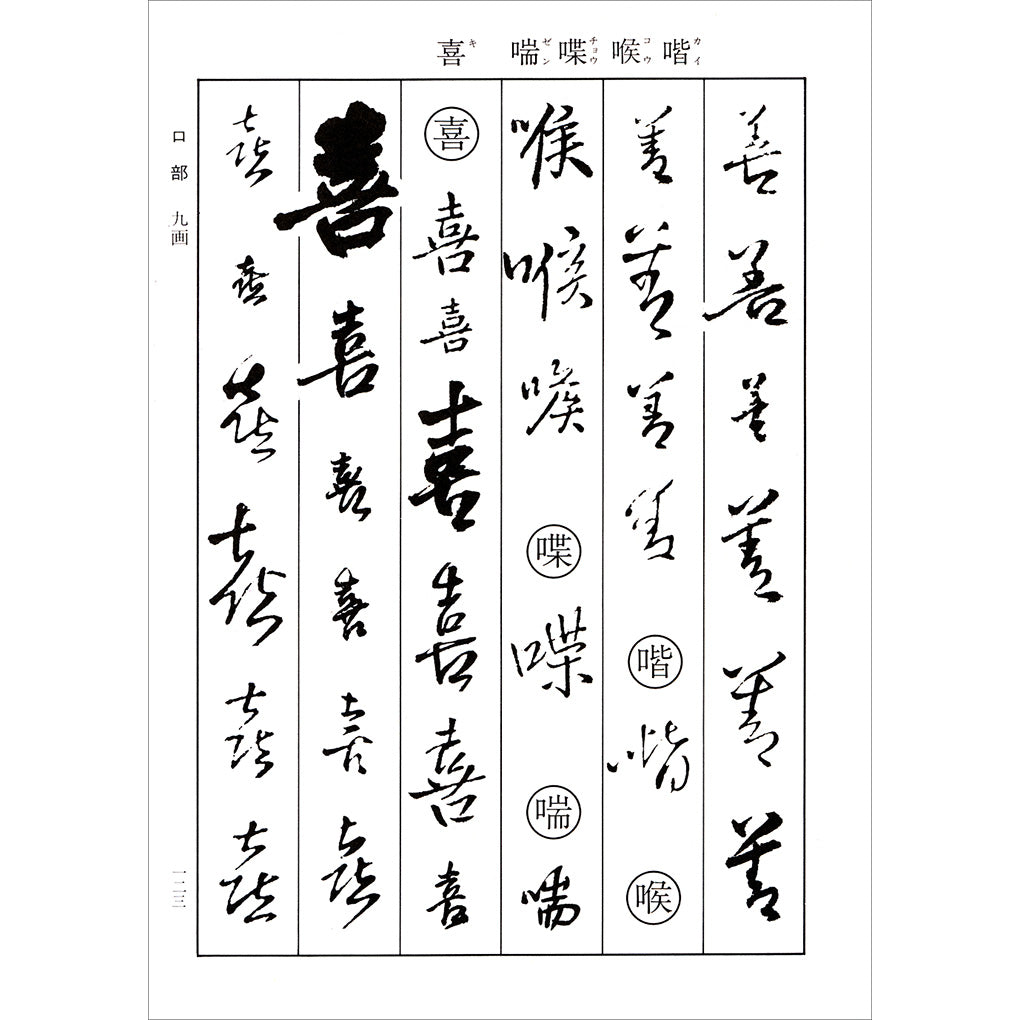 喈カイ 喉コウ 喋チョウ 喘ゼン 喜キ
善善善善善善
善善善善喈喈喉
喉喉喉喋喋喘喘
喜喜喜喜喜喜喜
喜喜喜喜喜喜
喜喜喜喜喜喜
口部 九画
一二三